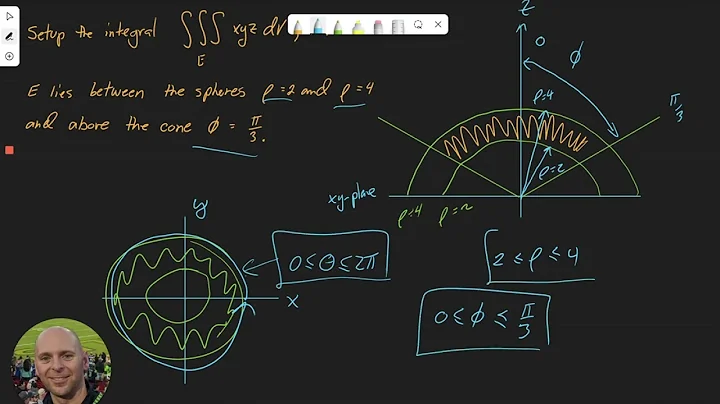 Setup the integral ∭ xyz dV,
E
E lies between the spheres ρ=2 and ρ=4
and above the cone φ = π/3.
z
0
φ
π/3
ρ=4
ρ=2
xy-plane
ρ=4 ρ=2
y
x
0≤θ≤2π
2≤ρ≤4
0≤φ≤π/3